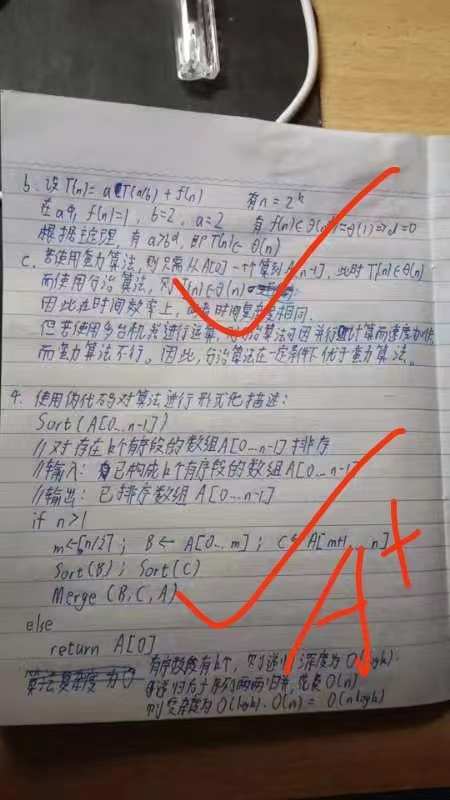 b. 设T(n)= aT(n/b) + f(n) 有n = 2^k
在a中, f(n)=1, b=2, a=2 有f(n)∈Θ(n^d)=Θ(1)=>d=0
根据主定理, 有a>b^d, 即T(n)∈Θ(n)
c. 若使用蛮力算法, 则只需从A[0]一个个算到A[n-1], 此时T(n)∈Θ(n)
而使用分治算法, 则T(n)∈Θ(n)
因此在时间效率上, 两者时间复杂度相同.
但若使用多台机器进行运算, 则分治算法可因并行计算而速度加快,
而蛮力算法不行。因此, 分治算法在一定条件下优于蛮力算法。
4. 使用伪代码对算法进行形式化描述:
Sort(A[0...n-1])
//对存在k个有序段的数组A[0...n-1]排序
//输入: 已构成k个有序段的数组A[0...n-1]
//输出: 已排序数组 A[0...n-1]
if n>1
m←[n/2]; B ← A[0...m]; C← A[m+1,...n]
Sort(B); Sort(C)
Merge (B,C,A)
else
return A[0]
算法复杂度为O
有序段有k个, 则递归深度为O(logk).
归并, 花费O(n)
则复杂度为O(logk)·O(n) = O(nlogk)
A+